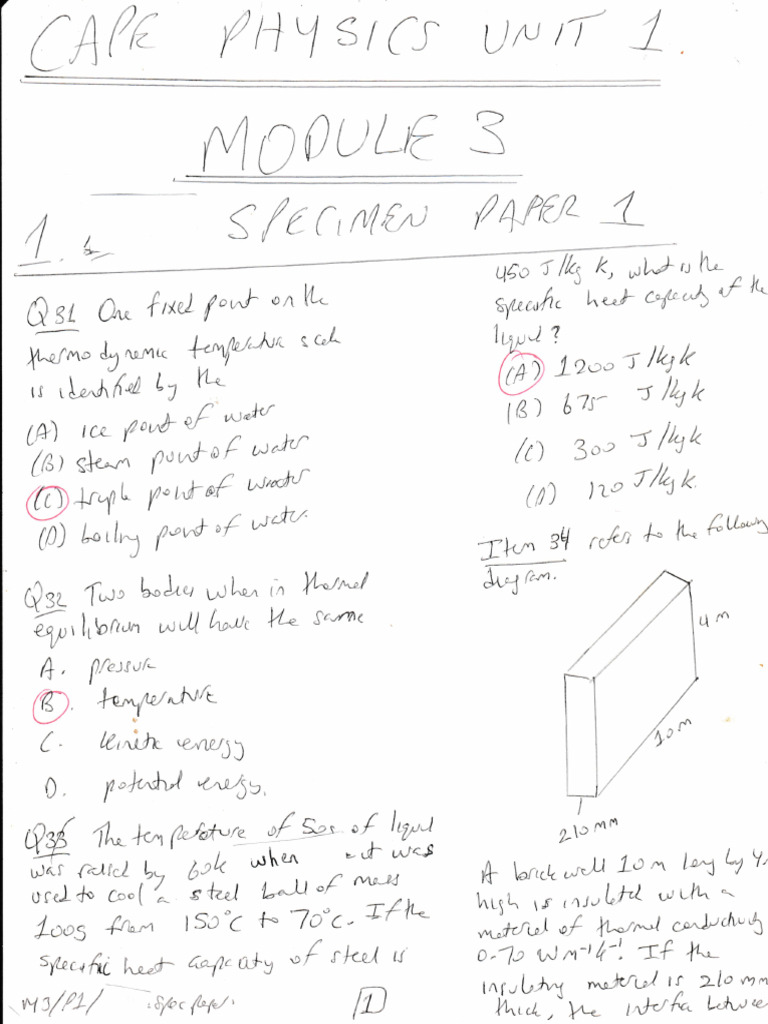 CAPE PHYSICS UNIT 1.
MODULE 3
1. SPECIMEN PAPER 1
Q31 One fixed point on the
thermodynamic temperature scale
is identified by the
(A) ice point of water
(B) steam point of water
(C) triple point of water
(D) boiling point of water.
Q32 Two bodies when in thermal
equilibrium will have the same
A. pressure
B. temperature
C. kinetic energy
D. potential energy.
Q33 The temperature of 50g of liquid
was raised by 60K when it was
used to cool a steel ball of mass
100g from 150°C to 70°C. If the
specific heat capacity of steel is
450 J/kg K, what is the
specific heat capacity of the
liquid?
(A) 1200 J/kgK
(B) 675 J/kgK
(C) 300 J/kgK
(D) 120 J/kgK.
Item 34 refers to the following
diagram.
4m
10m
210mm
A brick wall 10m long by 4
high is insulated with a
material of thermal conductivity
0.70 Wm⁻¹K⁻¹. If the
insulating material is 210 mm
thick, the interface between
M3/P1/ Spec paper.
1